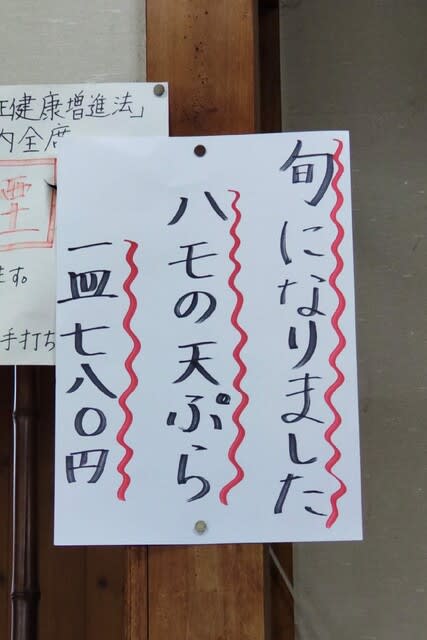 旬になりました
ハモの天ぷら
一皿七八〇円
健康増進法」
内全席
ます。
手打ち